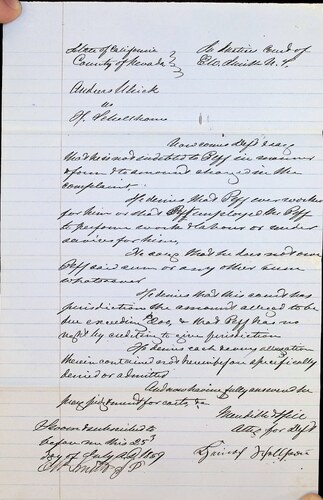 State of California
County of Nevada
In Justices Court of
E.W. Smith J.P.
Andrew Ulrick
vs
H. Schellhorn
Now comes Deft & says
that he is not indebted to Plff in manner
& form & to amount charged in the
complaint.
He denies that Plff ever worked
for him or that Deft employed the Plff
to perform work & labour or render
services for him,
He says that he does not owe
Plff said sum or any other sum
whatsoever
He denies that this court has
jurisdiction the amount alleged to be
due exceeding & that Plff has no
right by to give jurisdiction
He denies each & every allegation
therein contained not hereinbefore specifically
denied or admitted
And now having fully answered he
prays judgment for costs
Atty for Deft
Sworn & subscribed to
before me this 25th
day of July A.D. 1869
E.W. Smith J.P.